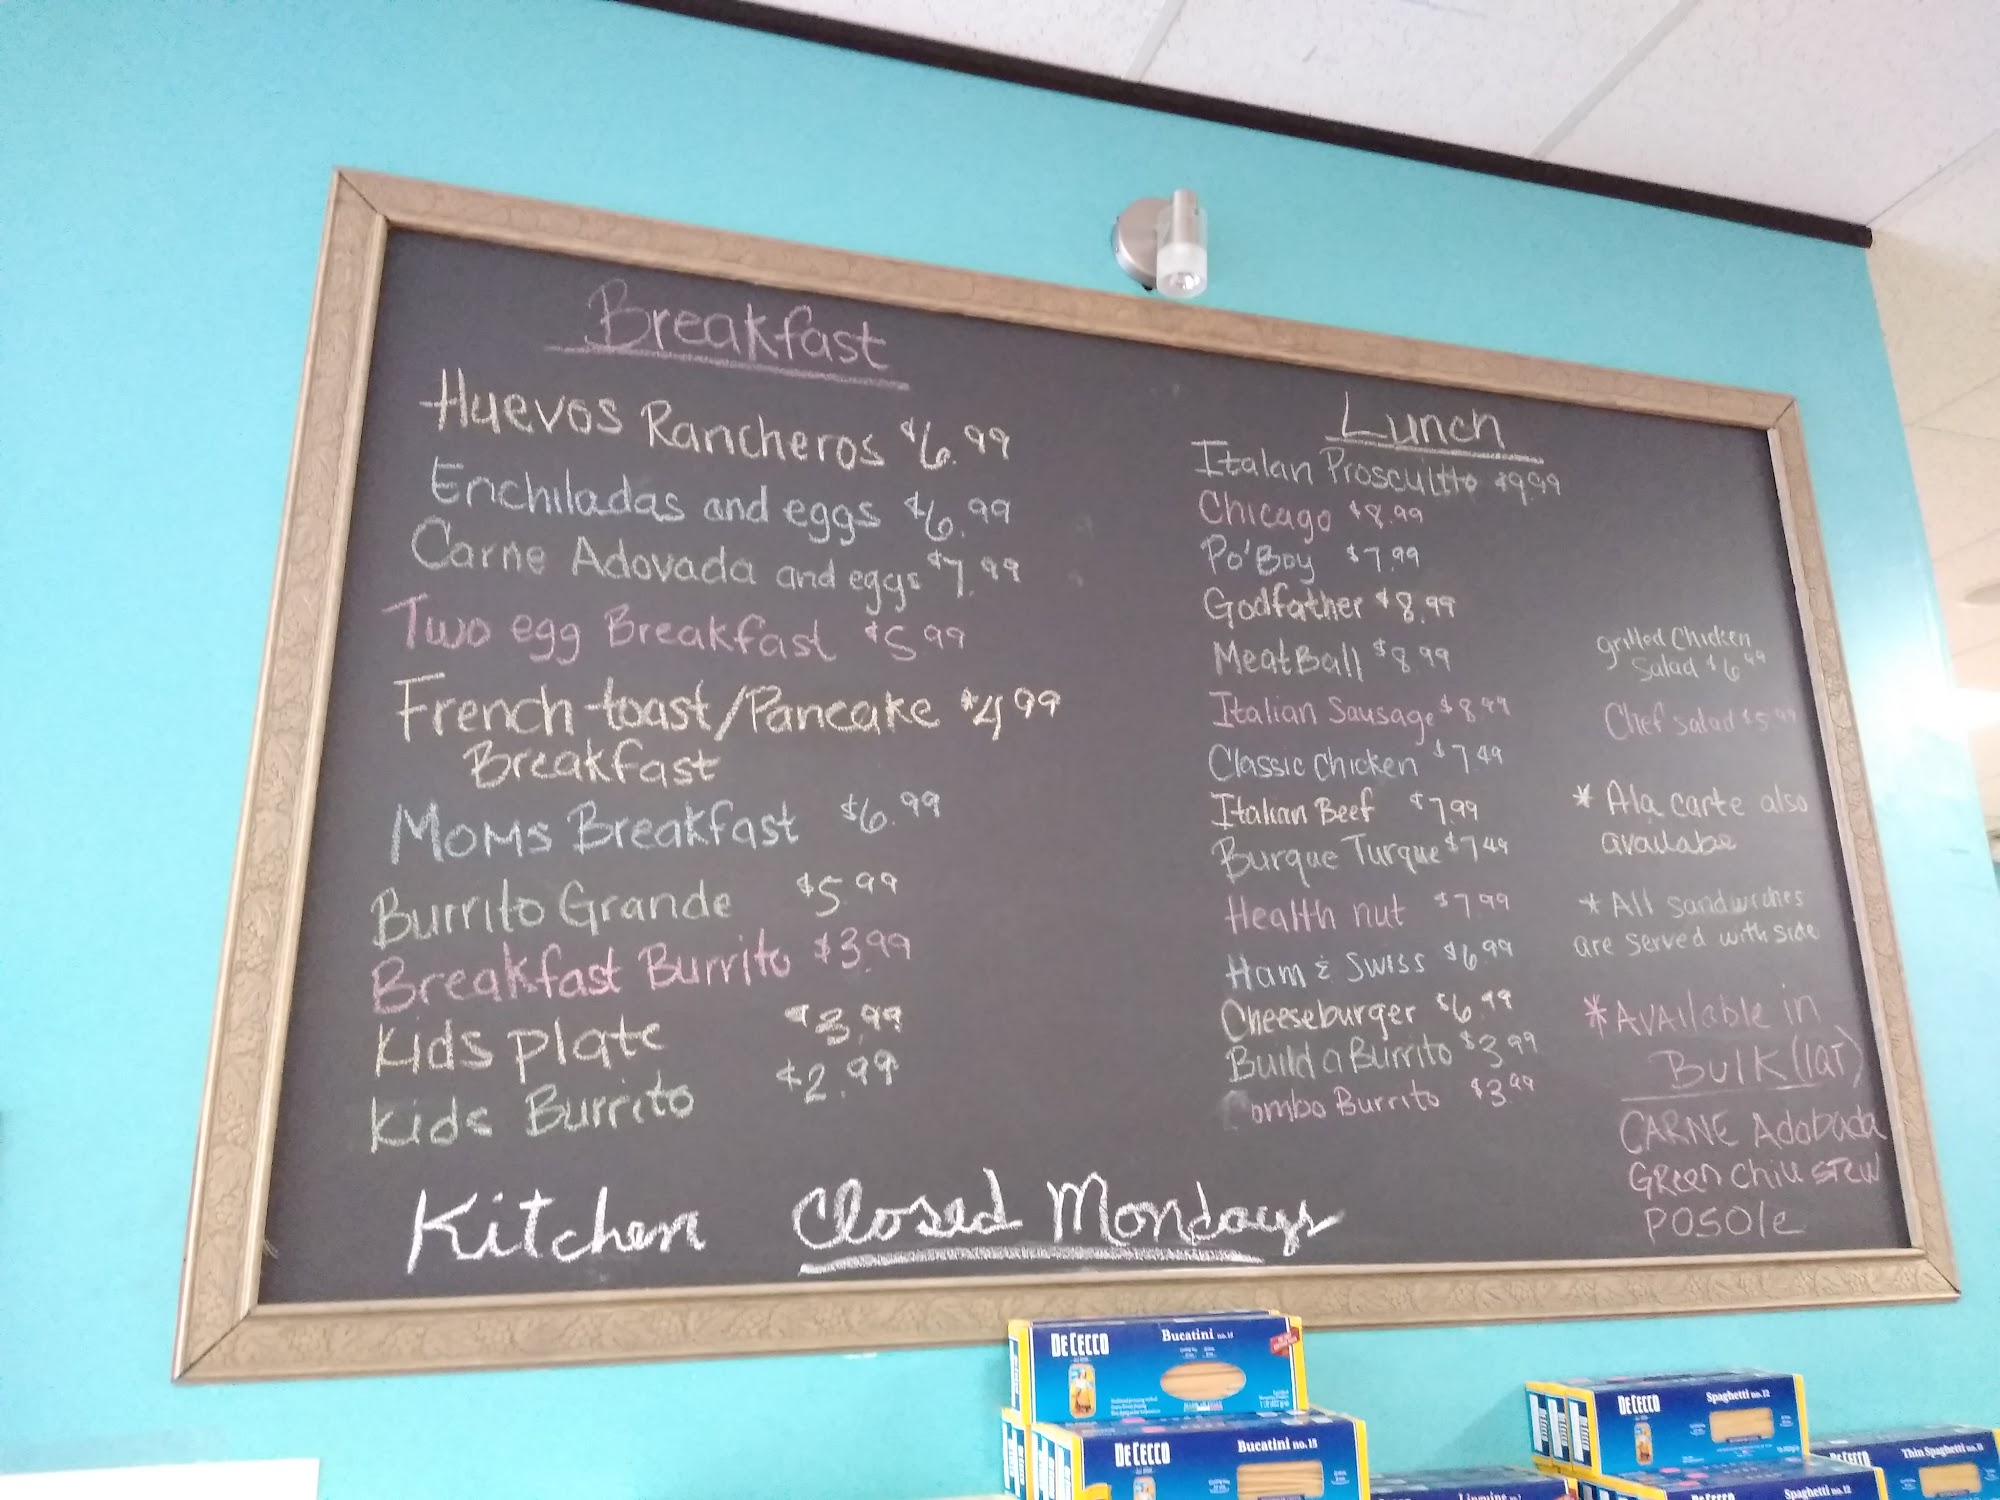 Breakfast
Huevos Rancheros $6.99
Enchiladas and eggs $6.99
Carne Adovada and eggs $7.99
Two egg Breakfast $5.99
French toast/Pancake $4.99
Breakfast
Moms Breakfast $6.99
Burrito Grande $5.99
Breakfast Burrito $3.99
Kids plate $3.99
Kids Burrito $2.99
Kitchen Closed Mondays
Lunch
Italan Proscuitto $9.99
Chicago $8.99
Po'Boy $7.99
Godfather $8.99
MeatBall $8.99
Italian Sausage $8.99
Classic Chicken $7.49
Italian Beef $7.99
Burque Turque $7.49
Health nut $7.99
Ham & Swiss $6.99
Cheeseburger $6.99
Build a Burrito $3.99
Combo Burrito $3.99
grilled Chicken
Salad $6.99
Chef salad $5.99
* Ala carte also
availabe
* All sandwiches
are served with side
*Available in
Bulk (1qt)
CARNE Adobada
Green Chili STEW
POSOle
DE CECCO Bucatini no.15
DE CECCO Bucatini no.15
DE CECCO Spaghetti no.12
DE CECCO Thin Spaghetti
Linguine
DE CECCO Spaghetti no.12